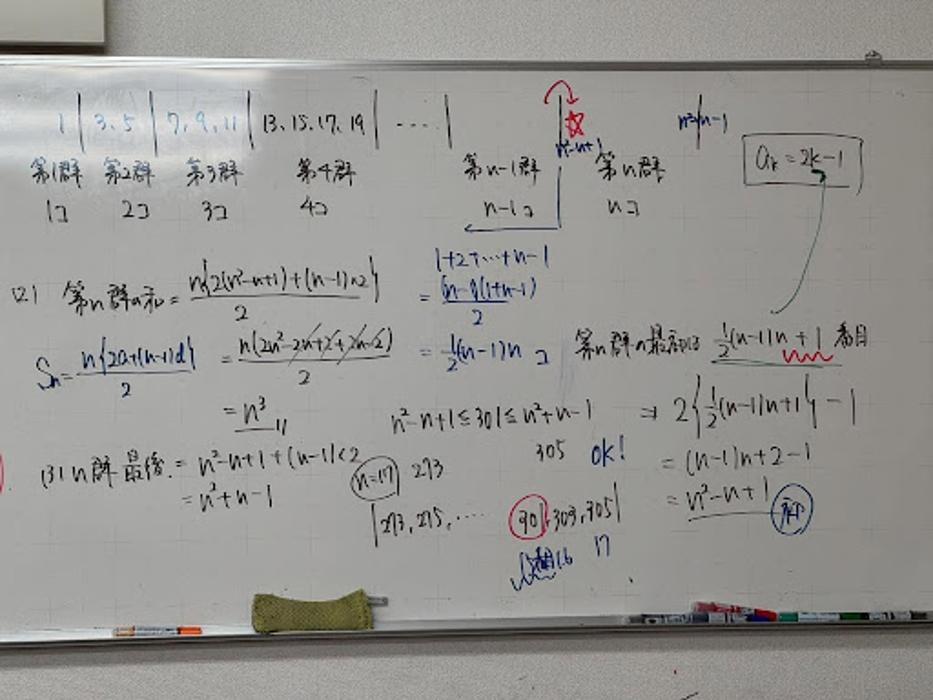 1 | 3、5 | 7、9、11 | 13、15、17、19 | ‥‥ | | ☆ n²-n+1 | n²+n-1
第1群 第2群 第3群 第4群 第n-1群 第n群
1コ 2コ 3コ 4コ n-1コ nコ
aₖ = 2k-1
1+2+…+n-1
= (n-1)(1+n-1)/2
= ½(n-1)n コ
第n群の最初は ½(n-1)n+1 番目
⇒ 2{½(n-1)n+1} -1
= (n-1)n+2-1
= n²-n+1
(2) 第n群の和 = n{2(n²-n+1)+(n-1)×2}/2
Sₙ = n{2a+(n-1)d}/2 = n(2n²-2n+2+2n-2)/2
= n³
(3) n群最後 = n²-n+1+(n-1)×2
= n²+n-1
n²-n+1 ≤ 301 ≤ n²+n-1
n=17 273 305 OK!
| 273, 275, ‥‥ 301, 303, 305 |
17